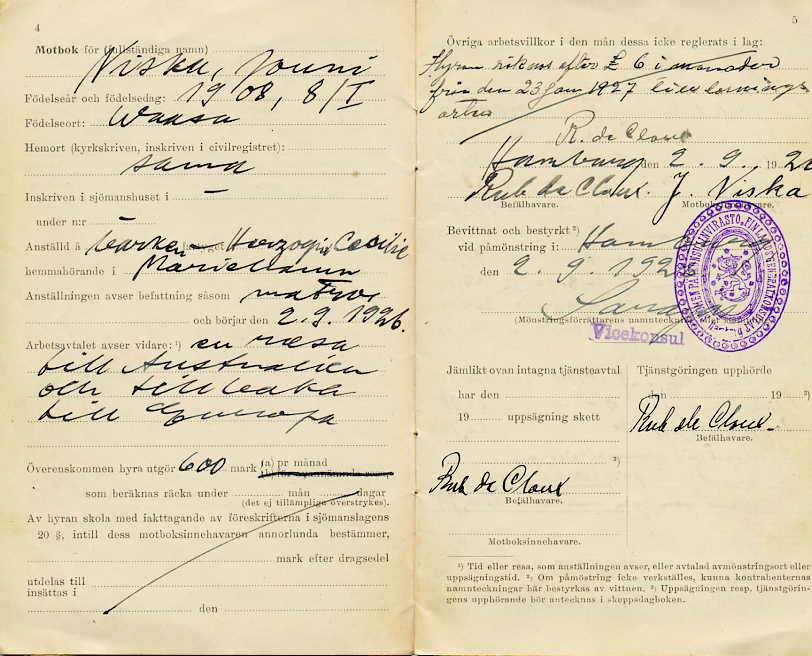 4
Motbok för (fullständiga namn)
Niska, Jouni
Födelseår och födelsedag: 1908, 8/I
Födelseort: Waasa
Hemort (kyrkskriven, inskriven i civilregistret):
sama
Inskriven i sjömanshuset i —
under n:r
Anställd å barken Herzogin Cecilie
hemmahörande i Mariehamn
Anställningen avser befattning såsom matros
och börjar den 2.9.1926.
Arbetsavtalet avser vidare: ¹) en resa
till Australien
och tillbaka
till Europa
Överenskommen hyra utgör 600 mark (a) pr månad
som beräknas räcka under mån dagar
(det ej tillämpliga överstrykes).
Av hyran skola med iakttagande av föreskrifterna i sjömanslagens
20 §, intill dess motboksinnehavaren annorlunda bestämmer,
mark efter dragsedel
utdelas till
insättas i
den
5
Övriga arbetsvillkor i den mån dessa icke reglerats i lag:
Hyran räknas efter £ 6 i månaden
från den 23 Jan 1927 eller lossnings
R. de Cloux
Hamburg den 2. 9. 1926
Rub de Cloux. J. Niska
Befälhavare. Motboksinnehavare.
Bevittnat och bestyrkt ²)
vid påmönstring i: Hamburg
den 2. 9. 192
(Mönstringsförrättarens namnteckning
Vicekonsul
Jämlikt ovan intagna tjänsteavtal
har den
19 uppsägning skett
³)
Rub de Cloux
Befälhavare.
Motboksinnehavare.
Tjänstgöringen upphörde
den 19 ³)
Rub de Cloux
Befälhavare.
¹) Tid eller resa, som anställningen avser, eller avtalad avmönstringsort eller
uppsägningstid. ²) Om påmöstring icke verkställes, kunna kontrahenternas
namnteckningar här bestyrkas av vittnen. ³) Uppsägningen resp. tjänstgörin-
gens upphörande bör antecknas i skeppsdagboken.